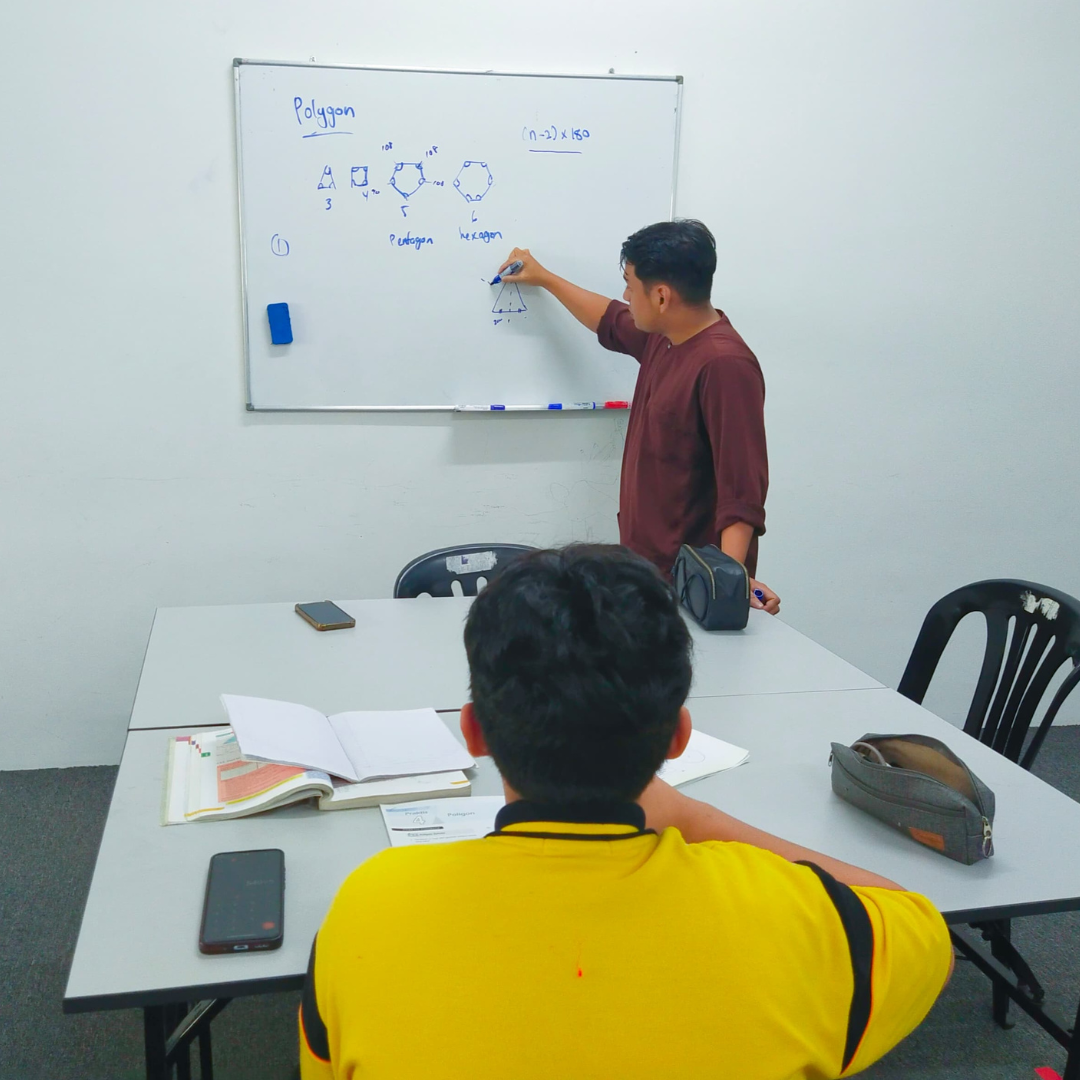 Polygon
(n-2) x 180
108 108
90 108
3 4 5 6
Pentagon hexagon
1
Poligon